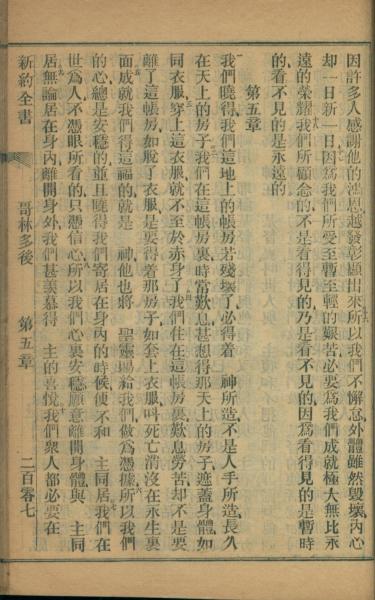 因許多人感謝他的鴻恩越發彰顯出來所以我們不懈怠外體雖然毀壞內心
却一日新一日因爲我們所受至暫至輕的艱苦必要爲我們成就極大無比永
遠的榮耀我們所顧念的不是看得見的乃是看不見的因爲看得見的是暫時
的看不見的是永遠的
第五章
我們曉得我們這地上的帳房若殘壞了必得着 神所造不是人手所造長久
在天上的房子我們在這帳房裏時常歎息甚想得那天上的房子遮蓋身體如
同衣服穿上這衣服就不至於赤身了我們住在這帳房裏歎息勞苦却不是要
離了這帳房如脫了衣服是要得着那房子如套上衣服呌死亡消沒在永生裏
面成就我們得這福的就是 神他也將 聖靈賜給我們做爲憑據所以我們
的心總是安穩的並且曉得我們寄居在身內的時候便不和 主同居我們在
世爲人不憑眼所看的只憑信心所以我們心裏安穩願意離開身體與 主同
居無論居在身內離開身外我們甚羨慕得 主的喜悅我們衆人都必要在
新約全書 哥林多後 第五章 二百零七